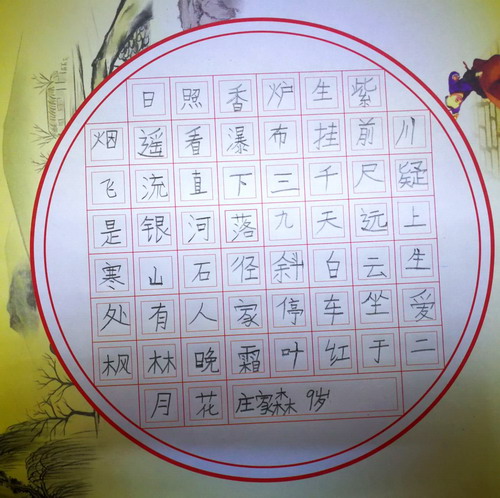 日照香炉生紫
烟遥看瀑布挂前川
飞流直下三千尺疑
是银河落九天远上
寒山石径斜白云生
处有人家停车坐爱
枫林晚霜叶红于二
月花 庄家森 9岁